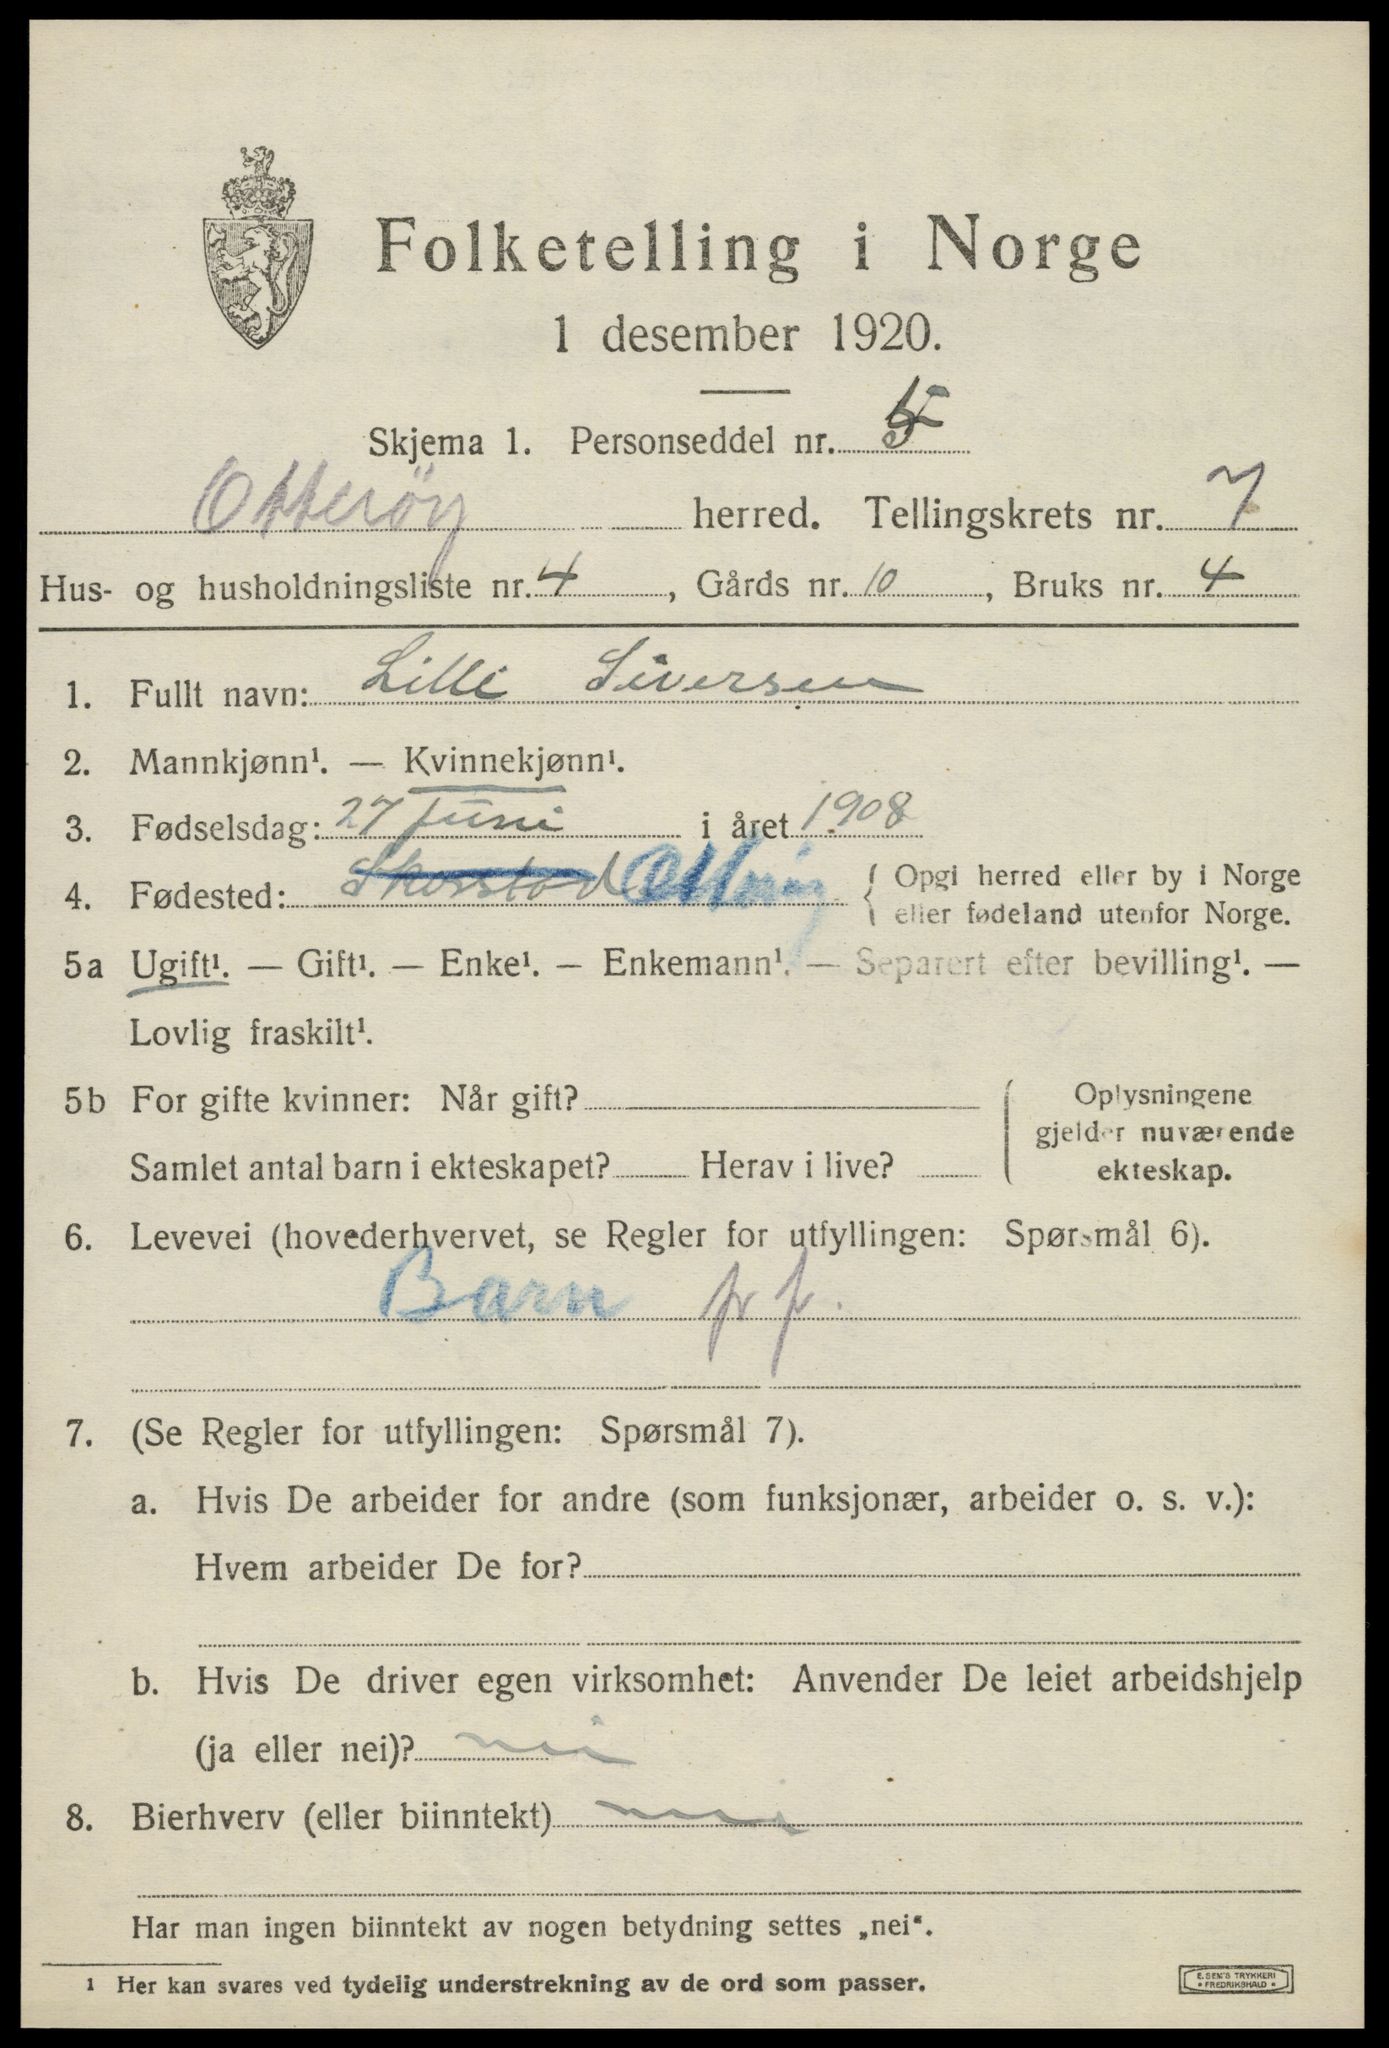 Folketelling i Norge
1 desember 1920.
Skjema 1. Personseddel nr. 5
Otterøy herred. Tellingskrets nr. 7
Hus- og husholdningsliste nr. 4, Gårds nr. 10, Bruks nr. 4
1. Fullt navn: Lilli Siversen
2. Mannkjønn¹. — Kvinnekjønn¹.
3. Fødselsdag: 27 juni i året 1908
4. Fødested: Skorstad Otterøy { Opgi herred eller by i Norge
eller fødeland utenfor Norge.
5a Ugift¹. — Gift¹. — Enke¹. — Enkemann¹. — Separert efter bevilling¹. —
Lovlig fraskilt¹.
5b For gifte kvinner: Når gift? ( Oplysningene
gjelder nuværende
Samlet antal barn i ekteskapet? Herav i live? ekteskap.
6. Levevei (hovederhvervet, se Regler for utfyllingen: Spørsmål 6).
Barn
7. (Se Regler for utfyllingen: Spørsmål 7).
a. Hvis De arbeider for andre (som funksjonær, arbeider o. s. v.):
Hvem arbeider De for?
b. Hvis De driver egen virksomhet: Anvender De leiet arbeidshjelp
(ja eller nei)? nei
8. Bierhverv (eller biinntekt) nei
Har man ingen biinntekt av nogen betydning settes „nei“.
1 Her kan svares ved tydelig understrekning av de ord som passer.
E. SEM'S TRYKKERI
• FREDRIKSHALD •